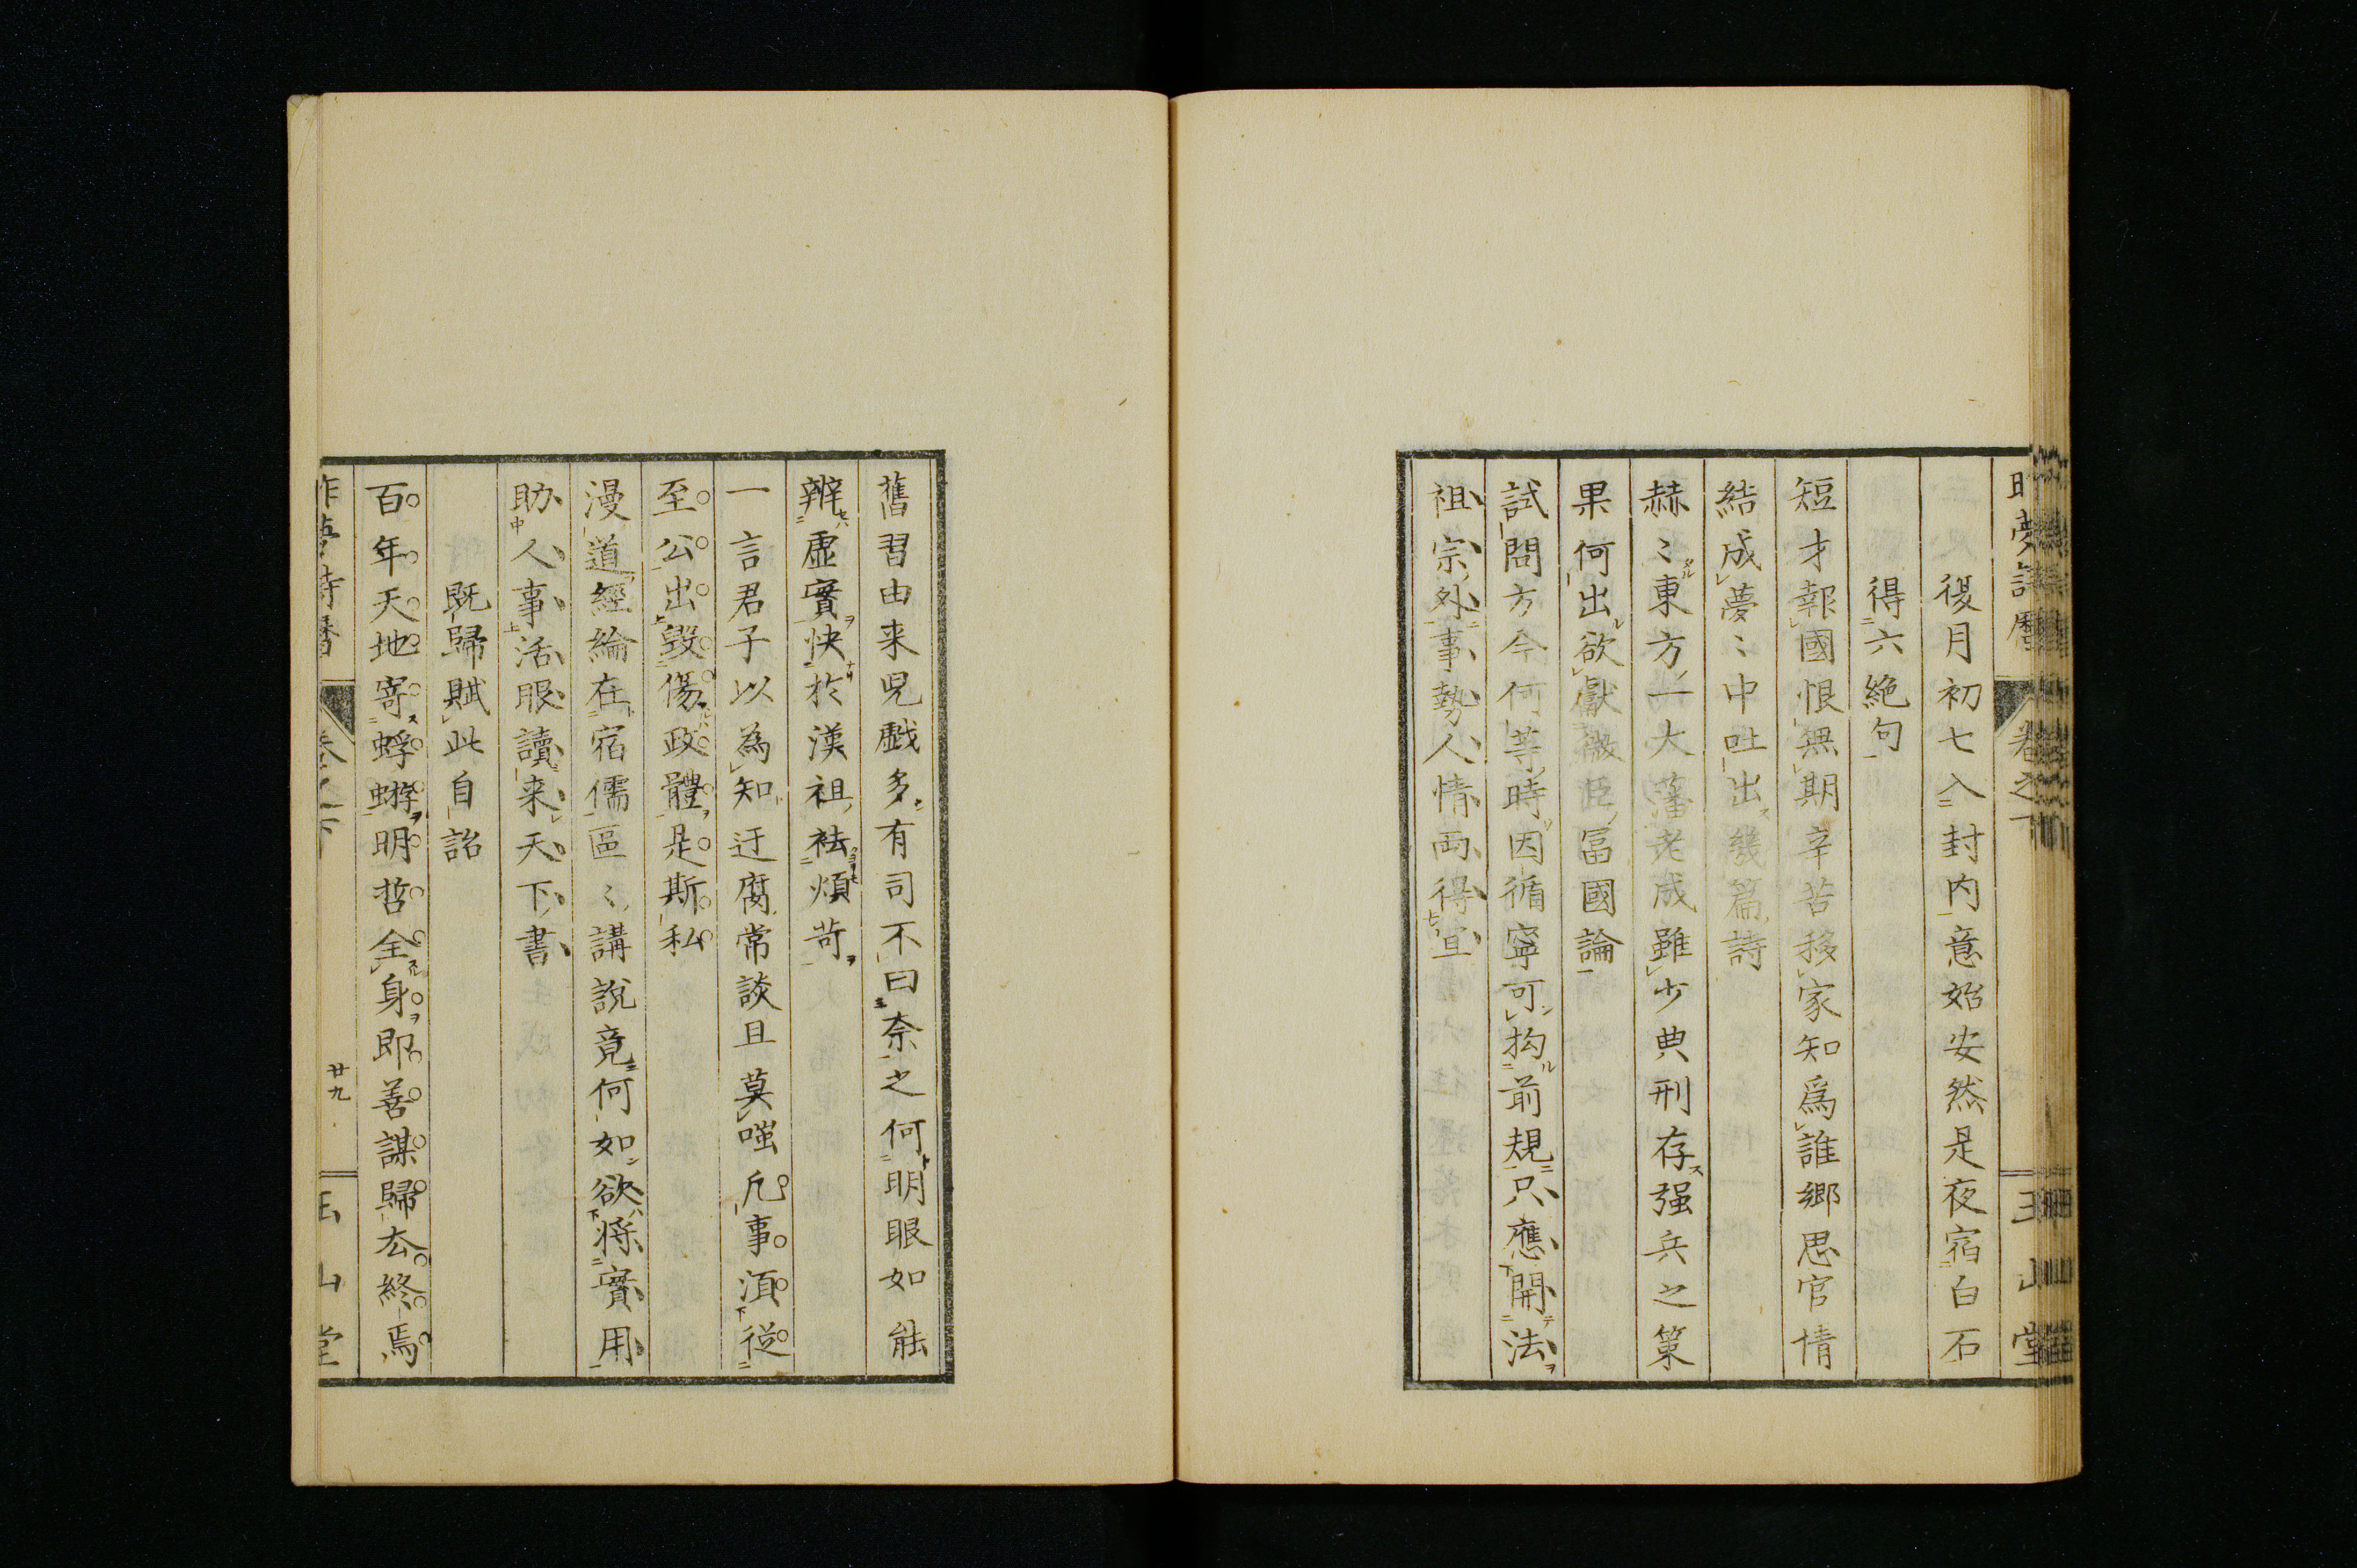 復月初七入封内意始安然是夜宿白石
得六絶句
短才報國恨無期辛苦移家知爲誰鄉思官情
結成夢〻中吐出幾篇詩
赫〻東方一大藩老成雖少典刑存强兵之策
果何出欲獻微臣冨國論
試問方今何等時因循寧可拘前規只應開法
祖宗外事勢人情両得宜
舊習由来児戯多有司不曰奈之何明眼如能
辨虚實快於漢祖袪煩苛
一言君子以為知迂腐常談且莫嗤凢事湏從
至公出毀傷政體是斯私
漫道經綸在宿儒區〻講說竟何如欲將實用
助人事活眼讀来天下書
既歸賦此自詒
百年天地寄蜉蝣明哲全身即善謀歸去終焉
廿九